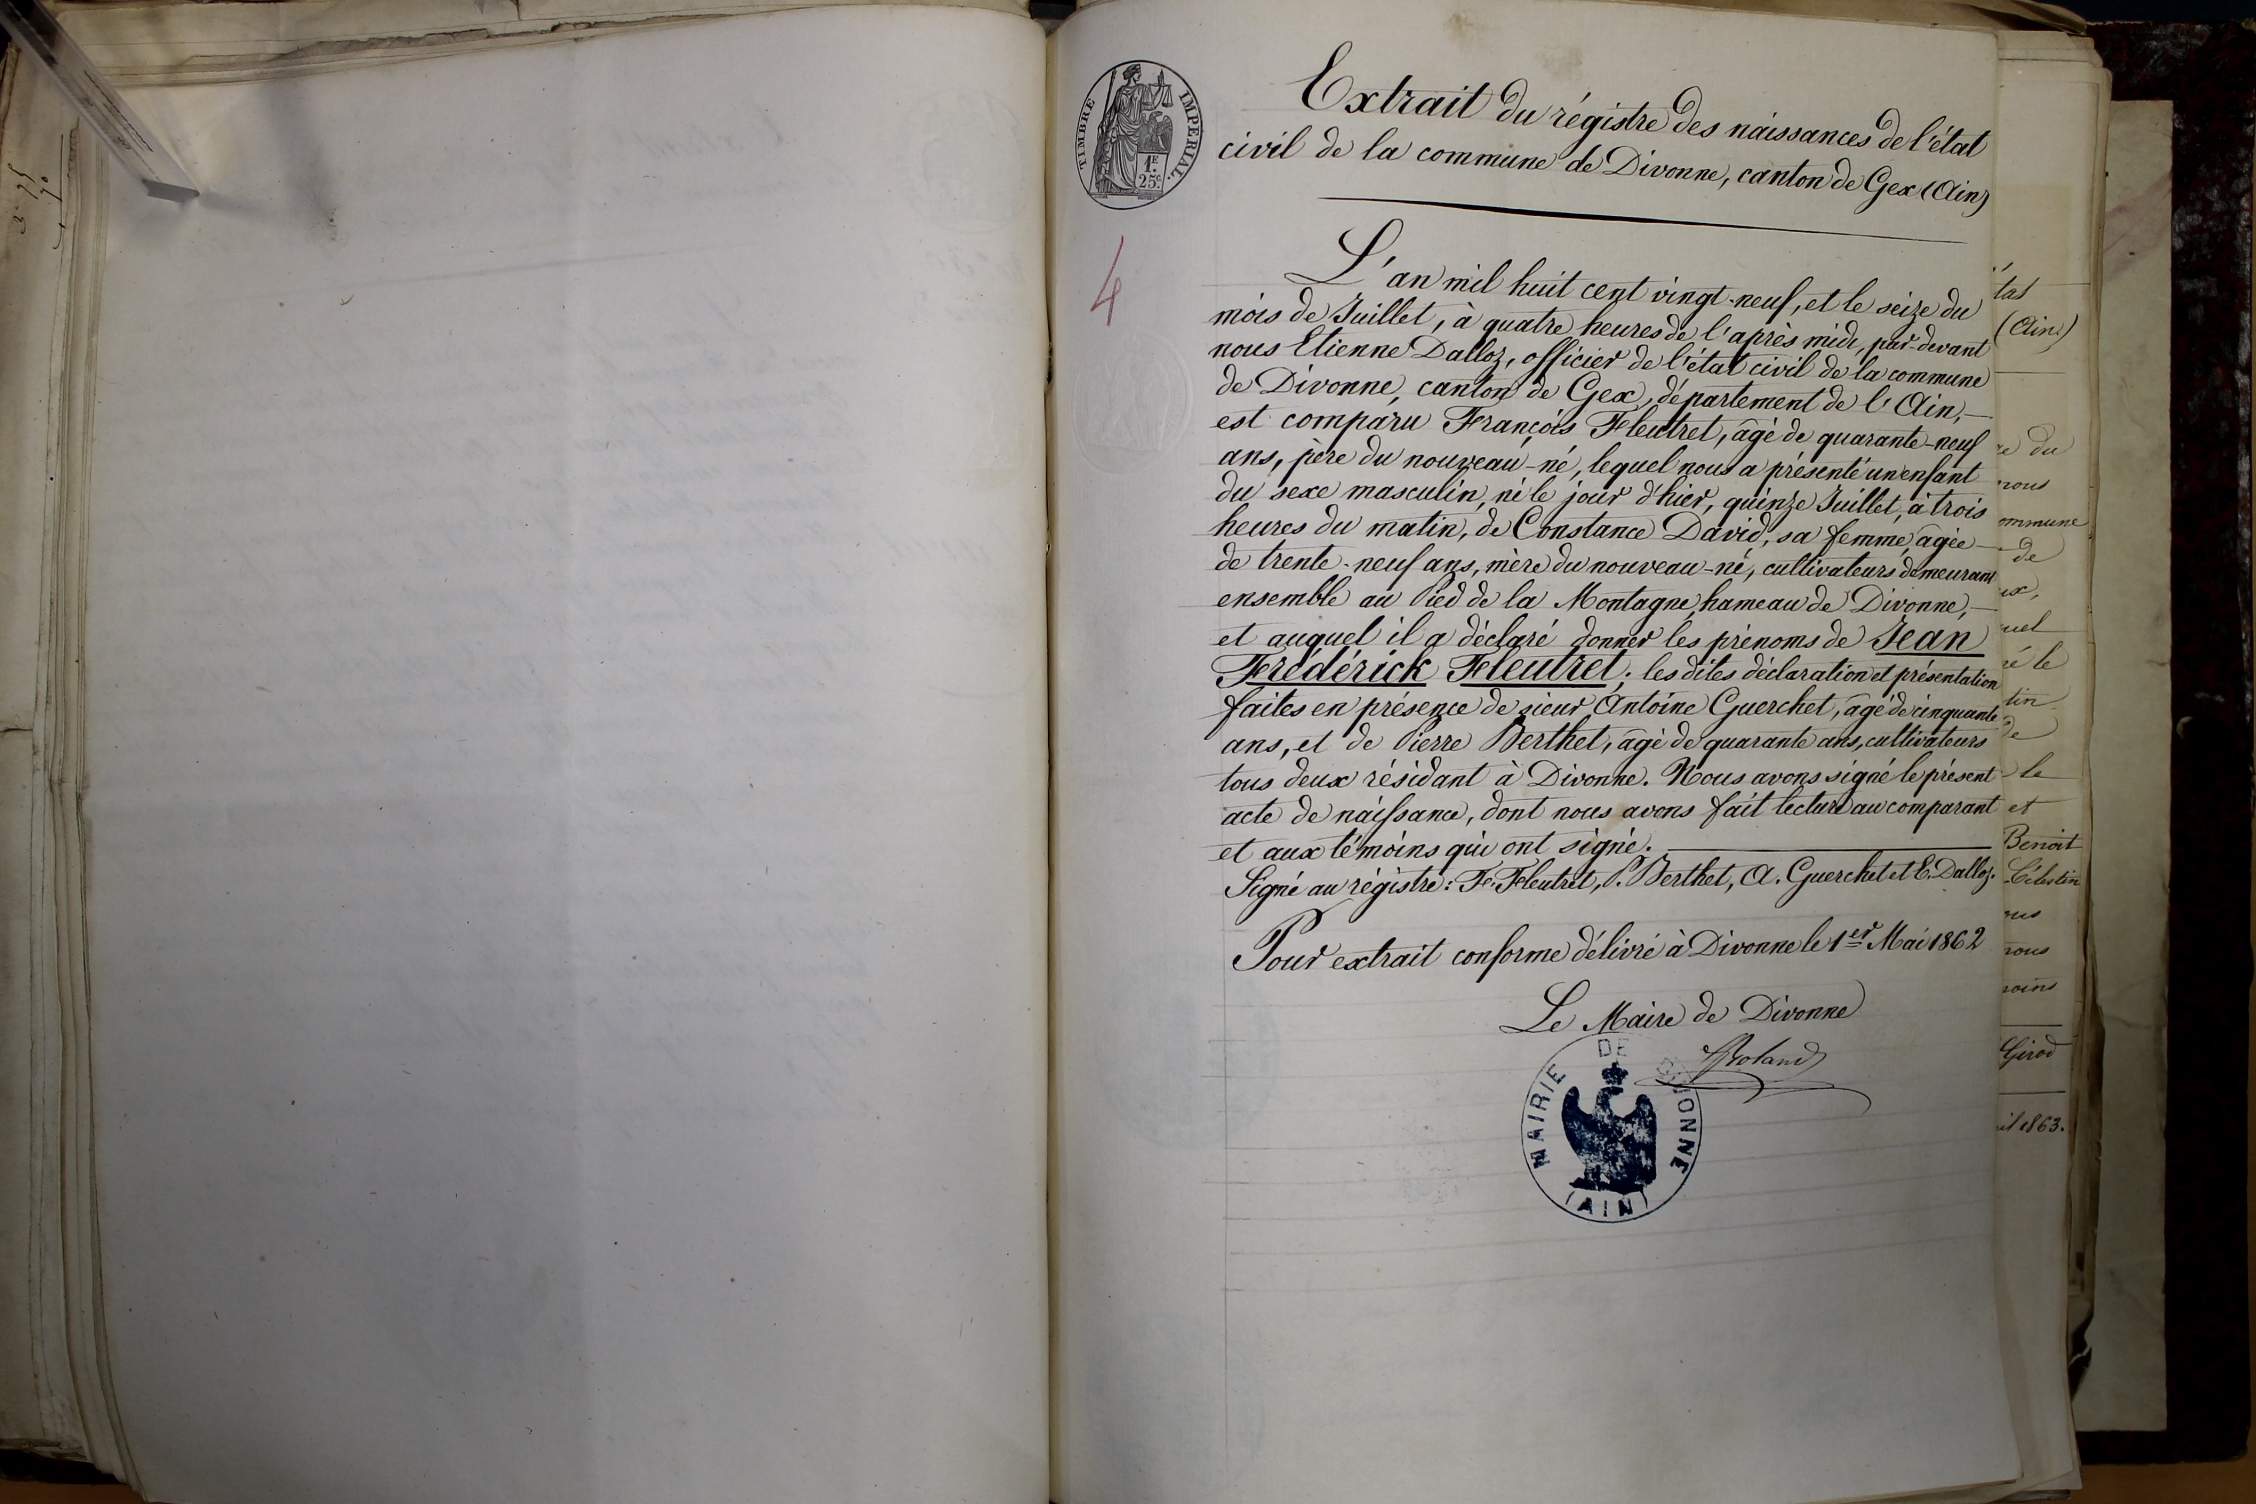 TIMBRE IMPÉRIAL.
1F.
25c.
4
Extrait du régistre des naissances de l'état
civil de la commune de Divonne, canton de Gex (Ain)
L'an mil huit cent vingt-neuf, et le seize du
mois de Juillet, à quatre heures de l'après midi, par-devant
nous Etienne Dalloz, officier de l'état civil de la commune
de Divonne, canton de Gex, département de l'Ain,—
est comparu François Fleutret, âgé de quarante-neuf
ans, père du nouveau-né, lequel nous a présenté un enfant
du sexe masculin, né le jour d'hier, quinze Juillet, à trois
heures du matin, de Constance David, sa femme, âgée—
de trente-neuf ans, mère du nouveau-né, cultivateurs demeurant
ensemble au Pied de la Montagne, hameau de Divonne,—
et auquel il a déclaré donner les prénoms de Jean
Frédérick Fleutret; les dites déclaration et présentation
faites en présence de sieur Antoine Guerchet, âgé de cinquante
ans, et de Pierre Berthet, âgé de quarante ans, cultivateurs
tous deux résidant à Divonne. Nous avons signé le présent
acte de naissance, dont nous avons fait lecture au comparant
et aux témoins qui ont signé.
Signé au régistre: F. Fleutret, P. Berthet, A. Guerchet et E. Dalloz.
Pour extrait conforme délivré à Divonne le 1er Mai 1862
Le Maire de Divonne
Roland
MAIRIE DE DIVONNE
(AIN)
(Ain)
du
nous
ommune
de
uel
é le
tin
de
le
et
Benoit
Célestin
ous
nous
moins
Girod
il 1863.